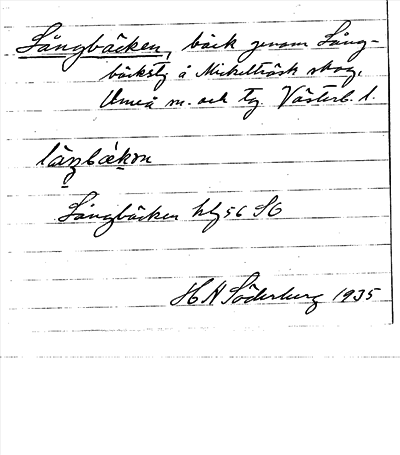 Långbäcken, bäck genom Lång-
bäckstj å Mickelträsk skog,
Umeå sn. och tg. Västerb. l.
Långbäcken hfg 56 SO
H N Söderberg 1935